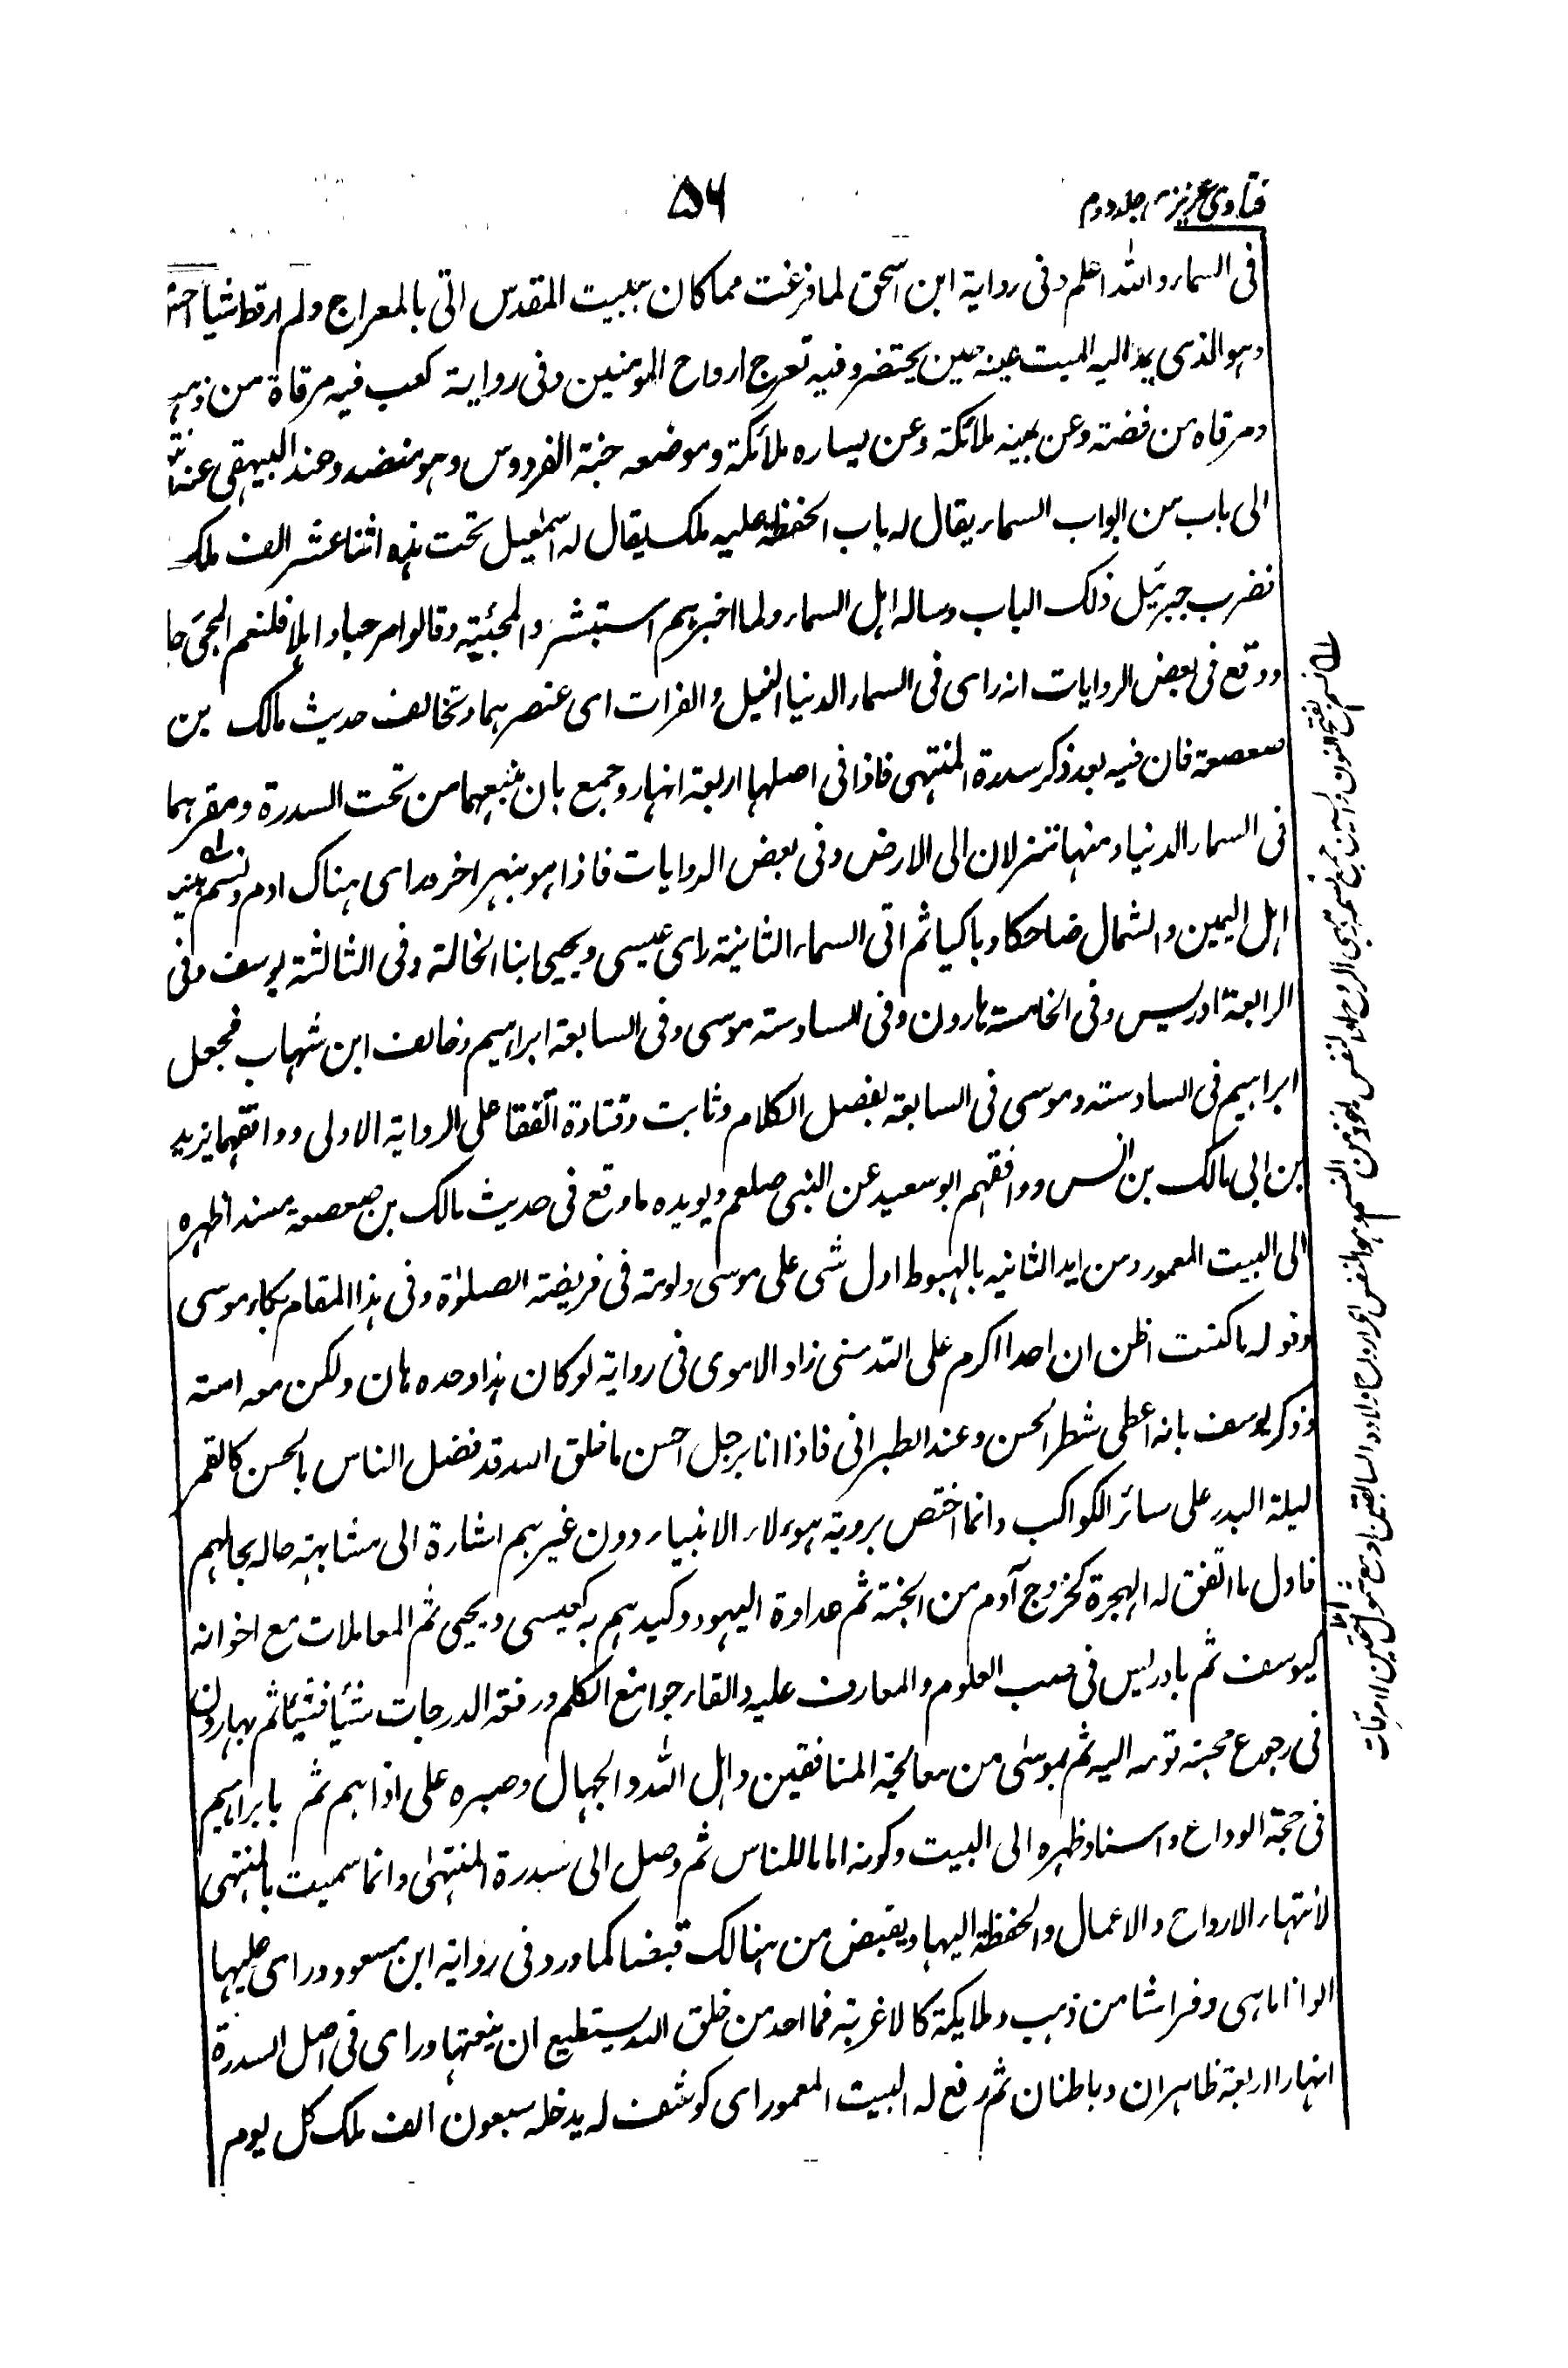 فتاوی عزیزی جلد دوم
۵۶
فی السماء واللہ اعلم وفی روایة ابن اسحق لما فرغت مما کان ببیت المقدس اتی بالمعراج ولم ارقط شیأ احسن
وہو الذی یمد الیہ المیت عینہ حین یحتضر وفیہ تعرج ارواح المؤمنین وفی روایة کعب فیہ مرقاة من ذہب
ومرقاہ من فضتہ وعن یمینہ ملائکة وعن یسارہ ملائکة وموضعہ جنة الفردوس وہو منضد وعند البیہقی
الی باب من ابواب السماء یقال لہ باب الحفظة علیہ ملک یقال لہ اسمٰعیل تحت یدہ اثنا عشر الف ملک
فضرب جبرئیل ذلک الباب وسالہ اہل السماء ولما اخبرہم استبشروا لمجئیہ وقالوا مرحبا واہلا فلنعم المجئ جا
ووقع فی بعض الروایات انہ رای فی السماء الدنیا النیل والفرات ای عنصرہما وتخالف حدیث مالک بن
صعصعة فان فیہ بعد ذکر سدرة المنتہی فاذا فی اصلہا اربعة انہار وجمع بان منبعہما من تحت السدرة ومقرہما
فی السماء الدنیا ومنہا تنزلان الی الارض وفی بعض الروایات فاذا ہو بنہر اخر ورای ہناک ادم ونسم بنیہ
اہل الیمین والشمال ضاحکا وباکیا ثم اتی السماء الثانیة رای عیسی ویحیی ابنا الخالة وفی الثالثة یوسف وفی
الرابعة ادریس وفی الخامسة ہارون وفی السادسة موسی وفی السابعة ابراہیم وخالف ابن شہاب فجعل
ابراہیم فی السادستہ وموسی فی السابعة بفضل الکلام وثابت وقتادة اتفقا علی الروایة الاولی ووافقہما یزید
بن ابی مالک بن انس ووافقہم ابو سعید عن النبی صلعم ویویدہ ما وقع فی حدیث مالک بن صعصعة مسند اظہرہ
الی البیت المعمور ومن اید الثانیہ بالہبوط اول شی علی موسی ولومتہ فی فریضتہ الصلوٰة وفی ہذا المقام بکاء موسی
وقولہ ما کنت اظن ان احدا اکرم علی اللہ منی زاد الاموی فی روایة لو کان ہذا وحدہ ہان ولکن معہ امتہ
وذکر یوسف بانہ اعطی شطر الحسن وعند الطبرانی فاذا انا برجل احسن ما خلق اللہ قد فضل الناس بالحسن کالقمر
لیلة البدر علی سائر الکواکب وانما اختص برویة ہؤلاء الانبیاء دون غیرہم اشارة الی مشابہتہ حالہ بحالہم
فاول ما اتفق لہ الہجرة کخروج آدم من الجنة ثم عداوة الیہود وکیدہم بہ کعیسی ویحیی ثم المعاملات مع اخوانہ
کیوسف ثم بادریس فی صب العلوم والمعارف علیہ والقاء جوامع الکلم ورفعہ الدرجات شئیا فشئیا ثم بہارون
فی رجوع محبتہ قومہ الیہ ثم بموسٰی من معالجة المنافقین واہل اللہ والجہال وصبرہ علی اذاہم ثم بابراہیم
فی حجة الوداع واسناد ظہرہ الی البیت وکونہ اماما للناس ثم وصل الی سدرة المنتہٰی وانما سمیت بالمنتہی
لانتہاء الارواح والاعمال والحفظة الیہا ویقبض من ہنالک قبضا کما ورد فی روایة ابن مسعود ورای علیہا
الوانا ماہی وفراشا من ذہب وملایکة کالاغربة فما احد من خلق اللہ یستطیع ان ینعتہا ورای فی اصل السدرة
انہارا اربعة ظاہران وباطنان ثم رفع لہ البیت المعمور ای کوشف لہ یدخلہ سبعون الف ملک کل یوم
نسم بفتح النون والسین جمع نسمة وہی الروح والنفس ماخوذ من النسم وہو النفس ای ارواح اولادہ السابقین